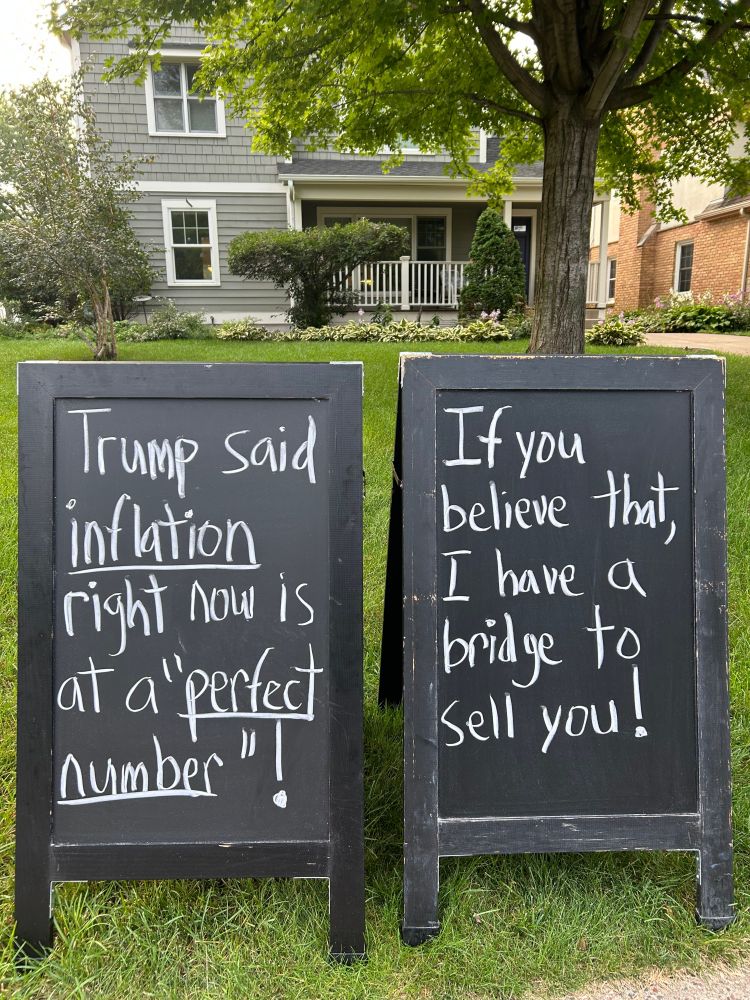 Trump said
inflation
right now is
at a "perfect
number"!
If you
believe that,
I have a
bridge to
sell you!